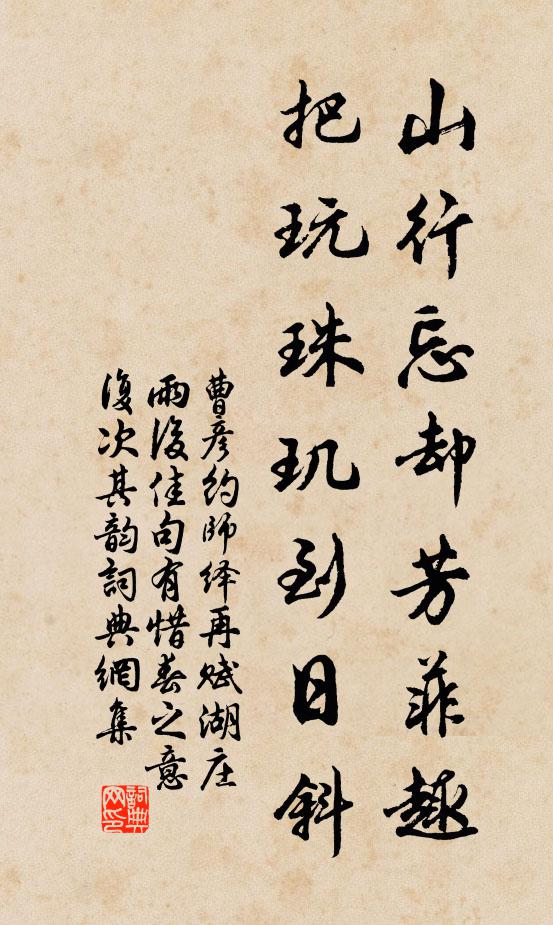 山行忘却芳菲趣
把玩珠玑到日斜
曹彦约师绎再赋湖庄
雨后佳句有惜春之意
復次其韵詞典網集
詞典网印